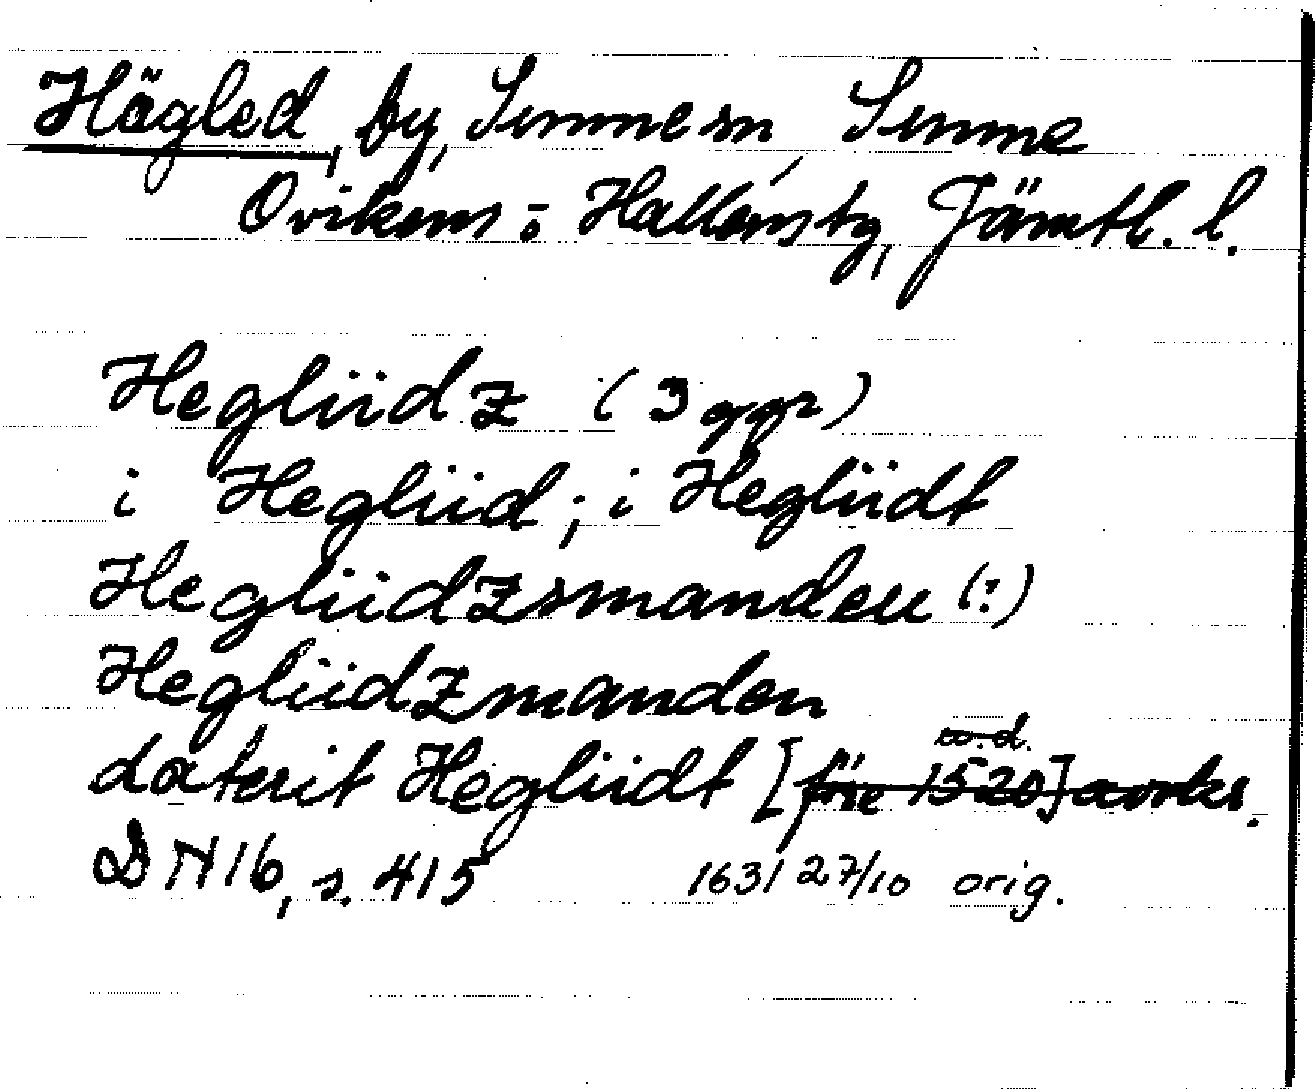 Högled, by, Sunne sn, Sunne
Ovikens o. Hallens tg, Jämtl. l.
Heglüdz (3 ggr)
i Heglüd; i Heglüdt
Heglüdzsmandeu (:)
Heglüdzmanden
daterit Heglüdt [före 1520] avskr.
o.d.
DN 16, s. 415 1631 27/10 orig.